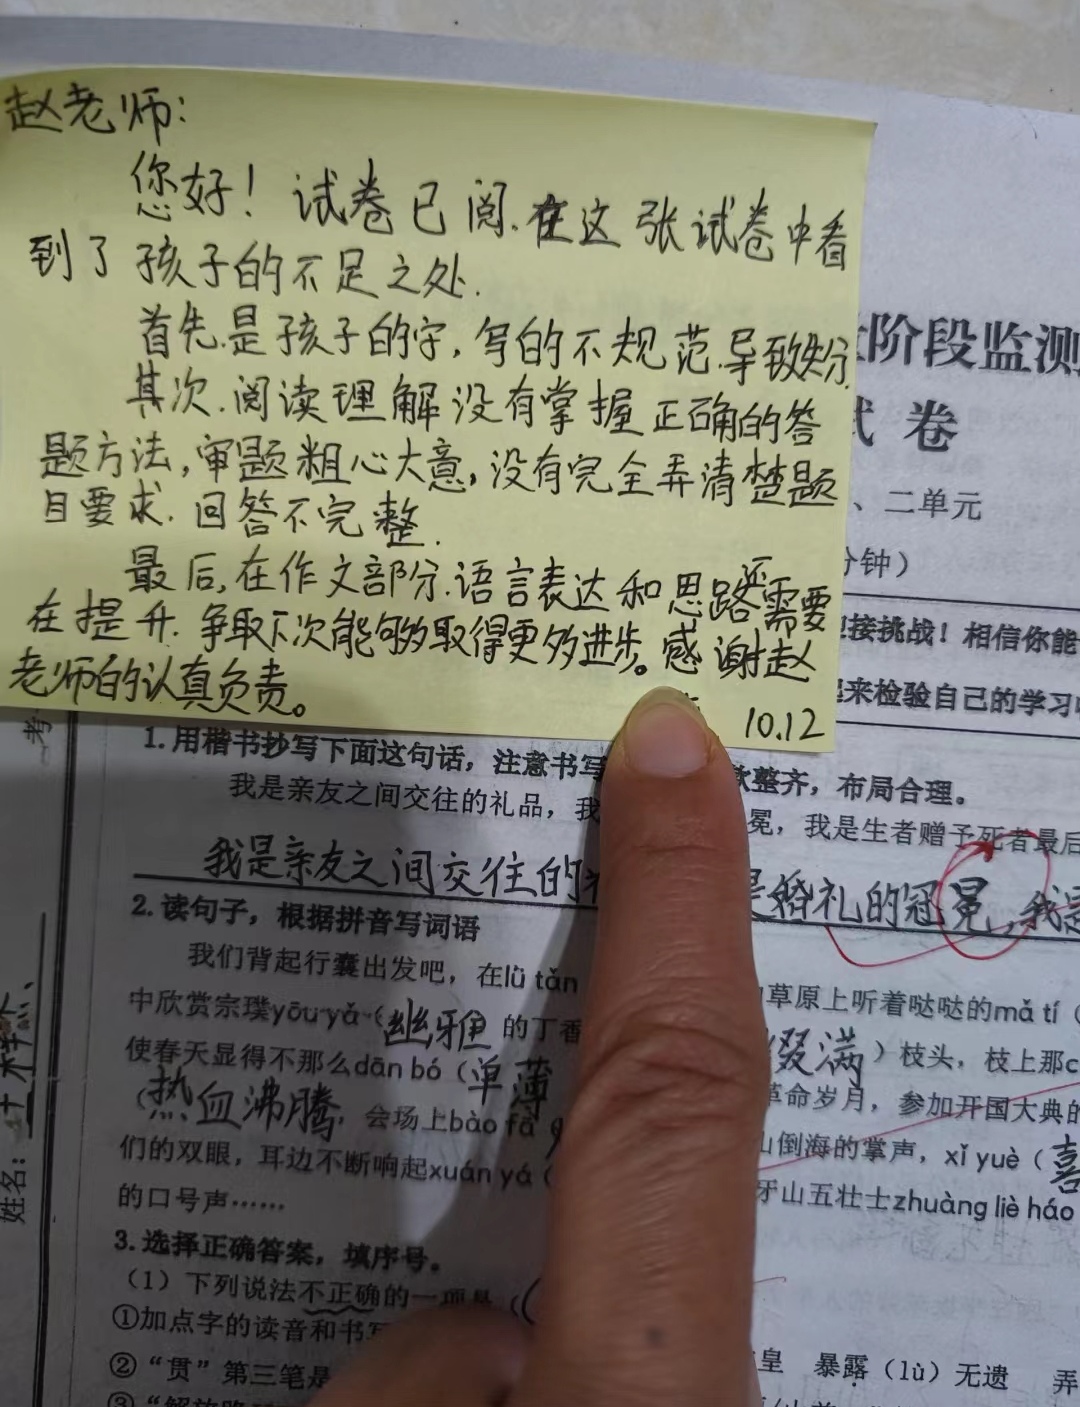 赵老师：
您好！试卷已阅.在这张试卷中看
到了孩子的不足之处.
首先.是孩子的字，写的不规范.导致失分.
其次.阅读理解没有掌握正确的答
题方法，审题粗心大意，没有完全弄清楚题
目要求.回答不完整.
最后，在作文部分.语言表达和思路还需要
在提升.争取下次能够取得更多进步。感谢赵
老师的认真负责。
10.12
阶段监测
试卷
、二单元
分钟）
迎接挑战！相信你能
起来检验自己的学习
1.用楷书抄写下面这句话，注意书写 款整齐，布局合理。
我是亲友之间交往的礼品，我 冕，我是生者赠予死者最后
我是亲友之间交往的 是婚礼的冠冕，我是
2.读句子，根据拼音写词语
我们背起行囊出发吧，在lǜ tǎn 草原上听着哒哒的mǎ tí（
中欣赏宗璞yōu yǎ（幽雅 的丁香 缀满）枝头，枝上那
使春天显得不那么dān bó（单薄 革命岁月，参加开国大典的
（热血沸腾，会场上bào fā 山倒海的掌声，xǐ yuè（喜
们的双眼，耳边不断响起xuán yá（ 牙山五壮士zhuàng liè háo
的口号声……
3.选择正确答案，填序号。
（1）下列说法不正确的一项是（
①加点字的读音和书写 皇 暴露（lù）无遗 弄
②“贯”第三笔是
姓名：
考